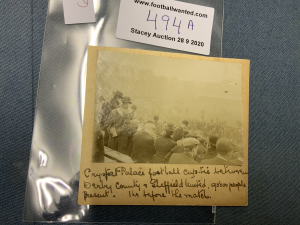 www.footballwanted.com
494A
Stacey Auction 28 9 2020
Crystal Palace football cup tie between
Derby County & Sheffield United, 90000 people
present. 1 hr before the match.